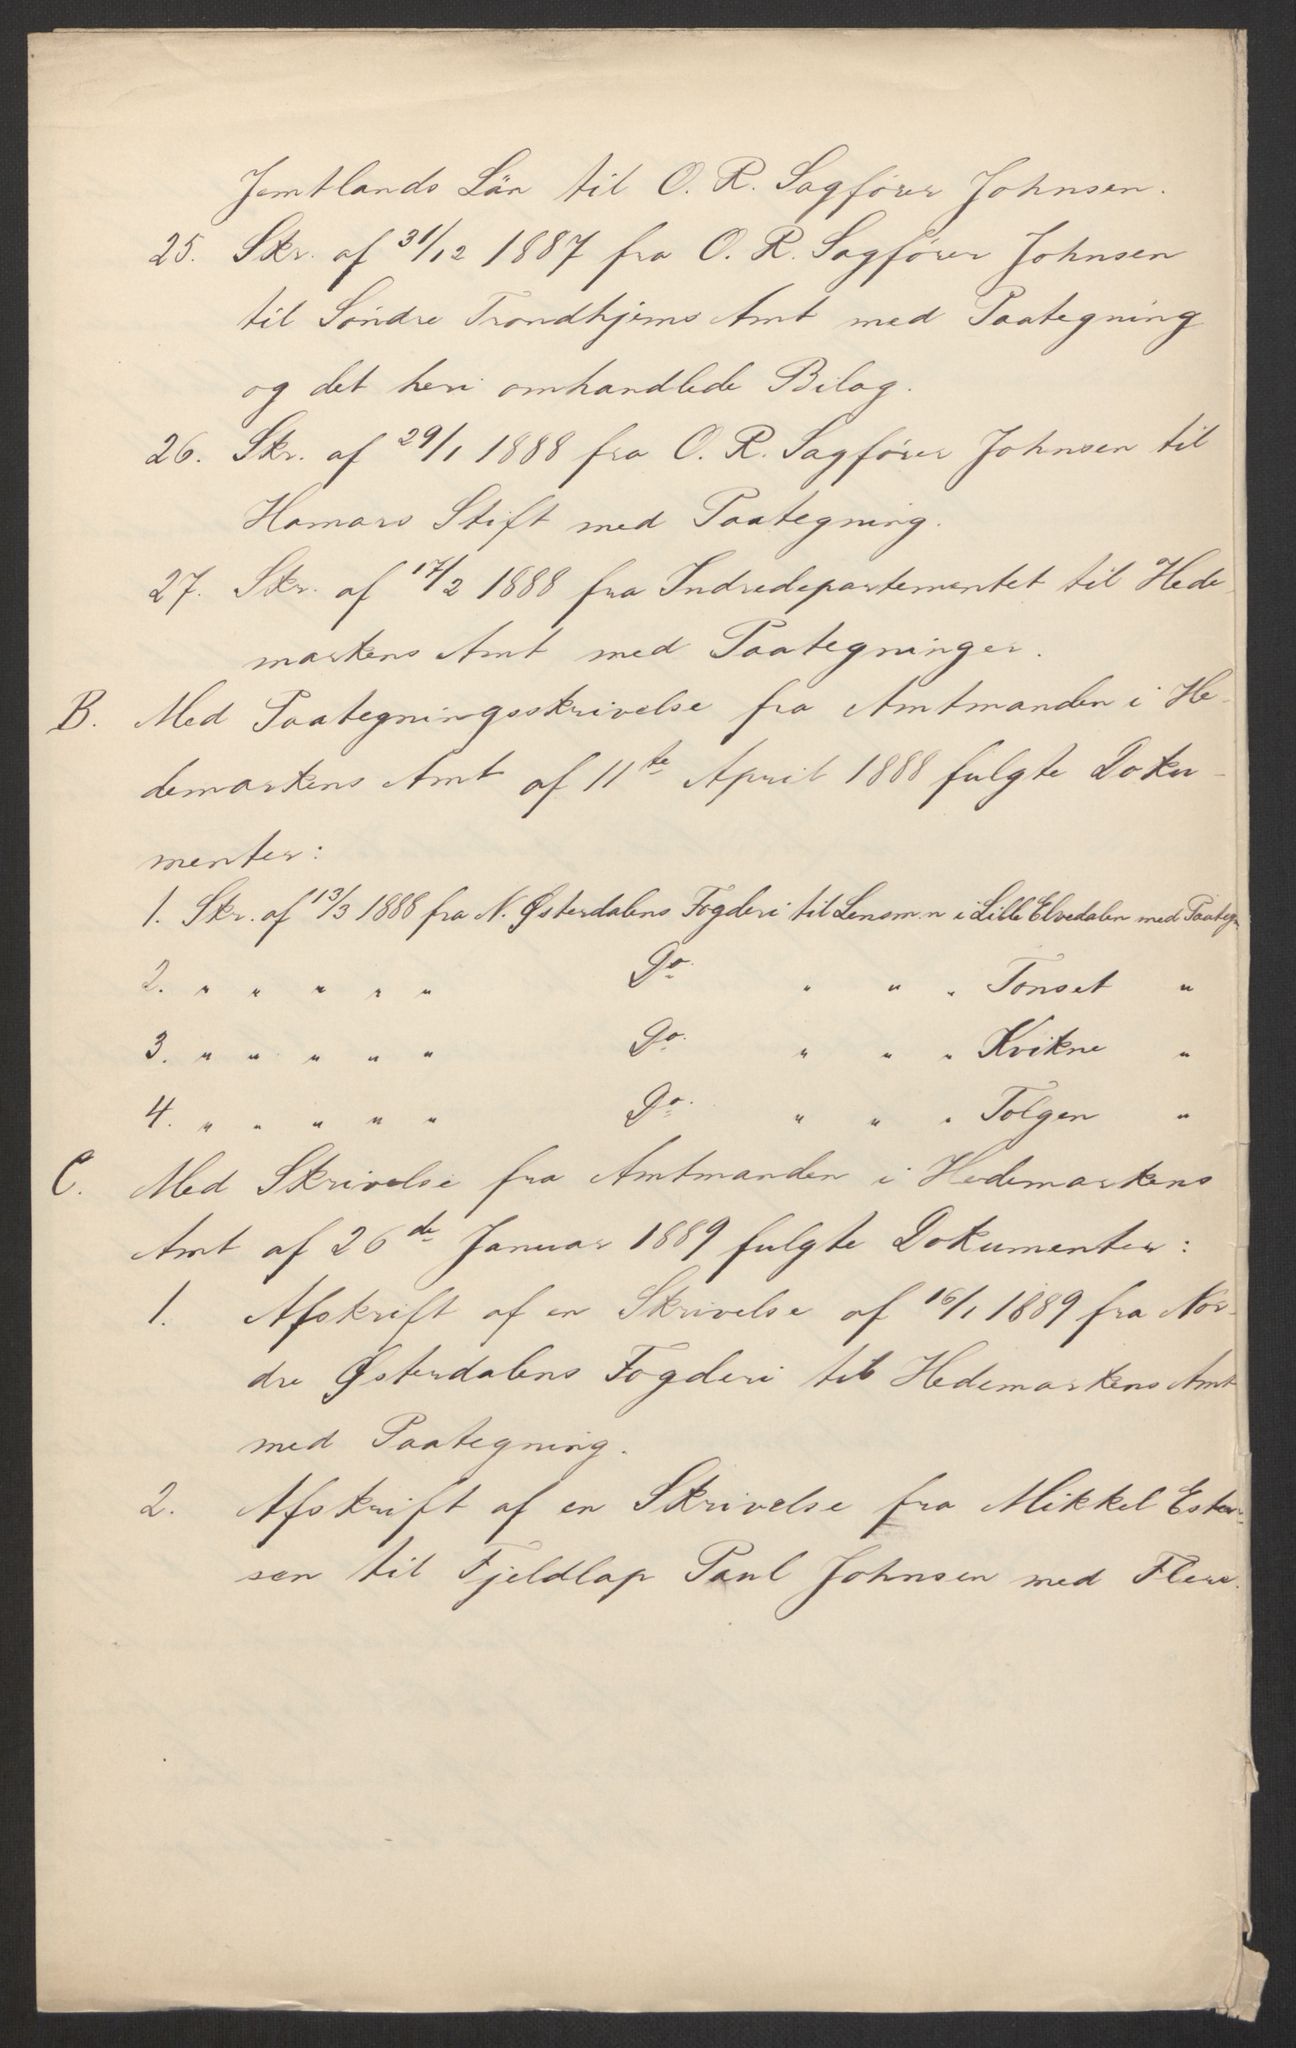 Jemtlands Län til O. R. Sagfører Johnsen.
25. Skr. af 31/12 1887 fra O. R. Sagfører Johnsen
til Söndre Trondhjems Amt med Paategning
og det heri omhandlede Bilag.
26. Skr. af 29/1 1888 fra O. R. Sagfører Johnsen til
Hamars Stift med Paategning.
27. Skr. af 17/2 1888 fra Indredepartementet til Hede-
markens Amt med Paategninger.
B. Med Paategningsskrivelse fra Amtmanden i He-
demarkens Amt af 11te April 1888 fulgte Doku-
menter:
1. Skr. af 13/3 1888 fra N. Østerdalens Fogderi til Lensm.n i Lille Elvedalen med Paategn
2. " " " " " Do. " " " Tönset "
3. " " " " " Do. " " " Kvikne "
4. " " " " " Do. " " " Tolgen "
C. Med Skrivelse fra Amtmanden i Hedemarkens
Amt af 26de Januar 1889 fulgte Dokumenter:
1. Afskrift af en Skrivelse af 16/1 1889 fra Nor-
dre Østerdalens Fogderi til Hedemarkens Amt
med Paategning.
2. Afskrift af en Skrivelse fra Mikkel Ester-
sen til Fjeldlap Paul Johnsen med Flere.